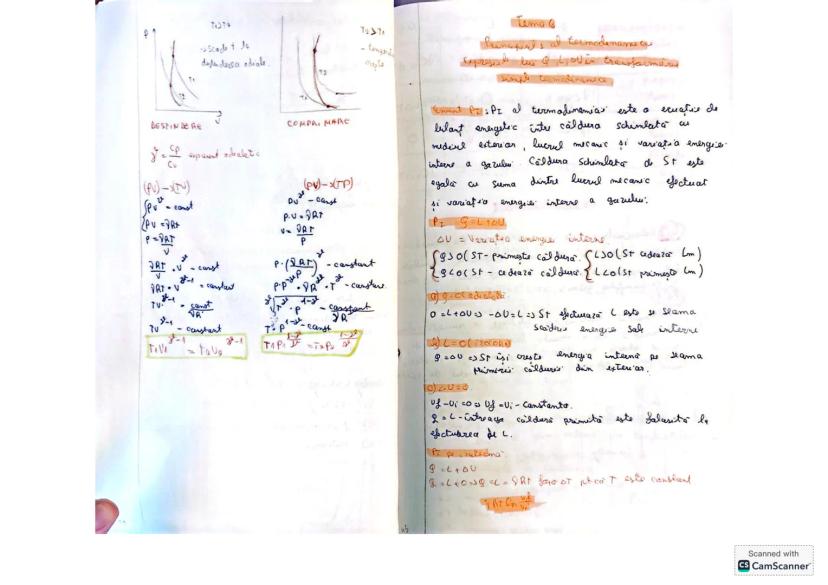 T1>T2
P
→ scade t la
destindere adiab.
T1
T2
V
DESTINDERE
T2>T1
T2
T1
COMPRIMARE
γ = Cp/Cv exponent adiabatic
(PV)→(TV)
PV^γ = const
PV = νRT
P = νRT/V
νRT/V · V^γ - const
νRT · V^γ-1 = constant
TV^γ-1 = const/νR
TV^γ-1 - constant
T1V1^γ-1 = T2V2^γ-1
(PV)→(TP)
PV^γ - const
P·V = νRT
V = νRT/P
P·(νRT/P)^γ - constant
P·P^-γ · νR^γ · T^γ - constant
T^γ · P^1-γ - constant/νR^γ
T·P^1-γ/γ - const
T1P1^1-γ/γ = T2P2^1-γ/γ
Tema 6
Principiul 1 al termodinamicii
Expresiile lui Q, L, ΔU în transformările
simple termodinamice
Enunț PI: PI al termodinamicii este o ecuație de
bilanț energetic între căldura schimbată cu
mediul exterior, lucrul mecanic și variația energiei
interne a gazului. Căldura schimbată de ST este
egală cu suma dintre lucrul mecanic efectuat
și variația energiei interne a gazului.
PI Q=L+ΔU
ΔU = Variația energiei interne
Q>0 (ST - primește căldură) L>0 (ST cedează Lm)
Q<0 (ST - cedează căldură) L<0 (ST primește Lm)
a) Q=0 adiabatic
0 = L+ΔU => -ΔU = L => ST efectuează L este pe seama
scăderii energiei sale interne
b) L=0 (izocoră)
Q=ΔU => ST își crește energia internă pe seama
primirii căldurii din exterior.
c) ΔU=0
Uf-Ui=0 => Uf=Ui - constanta.
Q=L - întreaga căldură primită este folosită la
efectuarea de L.
PI pe izotermă
Q = L + ΔU
Q = L + 0 => Q = L = νRT fără ΔT pt că T este constant
νRT ln Vf/Vi
Scanned with
CS CamScanner